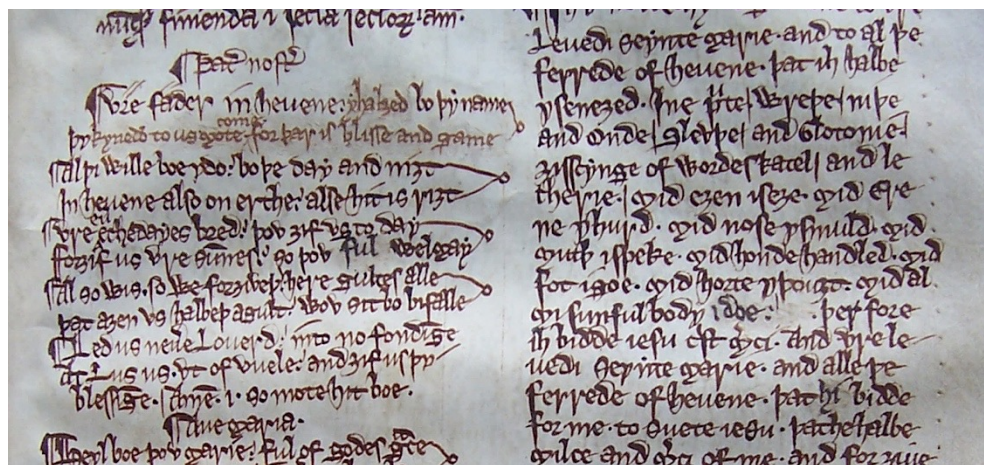 Pat' nost'
Vre fader in heuene: yhalȝed bo þy name
þy kynedo to us come for þar is blisse and game
Al þi wille boe ydo: boþe day and niȝt
In heuene also on erthe: alse hit is riȝt
Vre eche dayes bred: þov ȝif vs to day
forȝif us vre sunnes: so þov ful wel may
Al so wis so we forȝiueþ here gultes alle
þat aȝen vs habbeþ agult: wov sit bo bifalle
Led us neue Louerd: into no fondige
Ac Lus us vt of vuele: and ȝif us þy
blessige. Ame. i. so mote hit boe.
Aue maria.
Heyl boe þov marie: ful of godes gce
Leuedi Seynte marie. and to al þe
ferrede of heuene. þat ih habbe
yseneȝed. Ine p'te, Wreþe, niþe
and Onde, Slewþe, and Glotonie.
of wordes and le
cherie. Mid eȝen iseȝe. mid Ere
ne yhurd. mid nose ysmuld. mid
muth ispeke. mid honde handled. mid
fot igoe. mid horte yþouȝt. mid al
mi sunful body idoe: þer fore
ih bidde iesu cst mci. And vre le
uedi Seynte marie. and alle þe
ferrede of heuene. þat hi bidde
for me. to suete iesu. þat he habbe
milce and mci of me. and for ȝiue